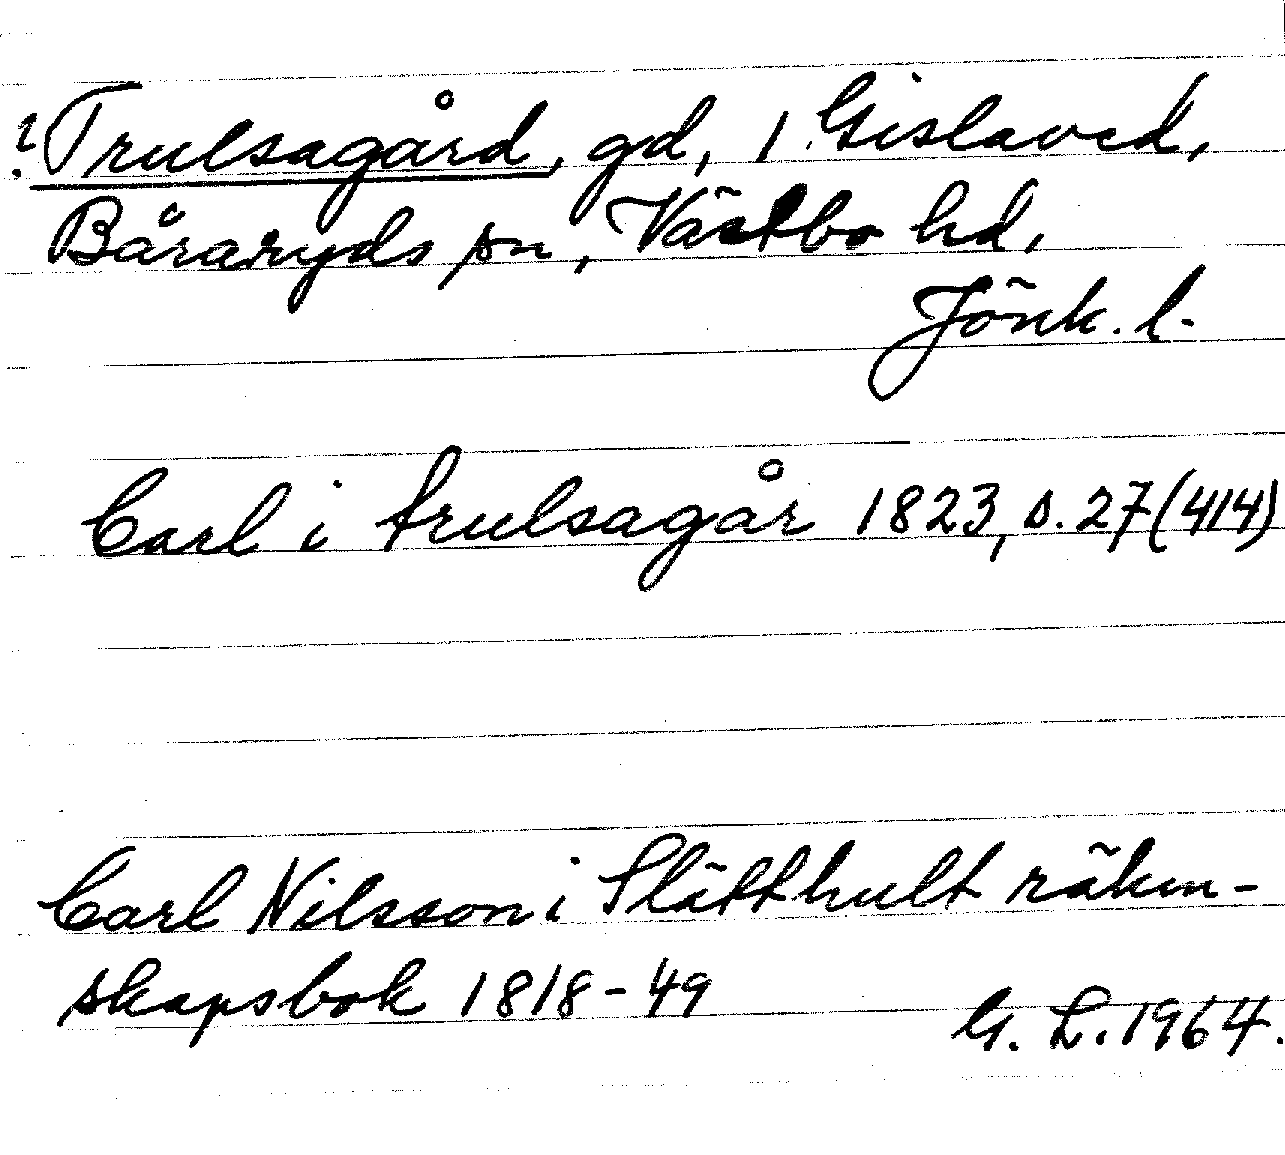 ? Trulsagård, gd, 1 Gislaved,
Båraryds sn, Västbo hd,
Jönk. l.
Carl i trulsagår 1823, s. 27 (414)
Carl Nilsson i Slätthult räken-
skapsbok 1818-49
G. L. 1964.